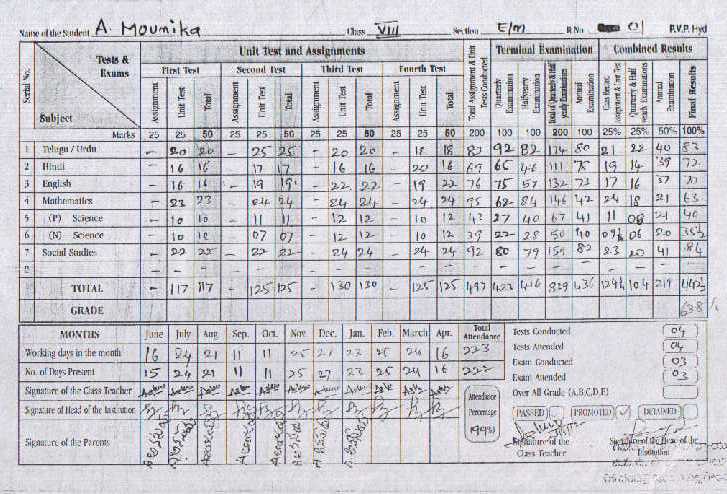 Name of the Student A. Mounika Class VIII Section E/m R.No 01 P.V.P. Hyd
Serial No. Tests & Exams Subject Unit Test and Assignments Total Assignment & Unit Tests Conducted Terminal Examination Combined Results
First Test Second Test Third Test Fourth Test Quarterly Examination Halfyearly Examination Total of Quarterly & Half yearly Examinations Annual Examination Quarterly & Half yearly Examinations Annual Examination Final Results
Assignment Unit Test Total Assignment Unit Test Total Assignment Unit Test Total Assignment Unit Test Total
Marks 25 25 50 25 25 50 25 25 50 25 25 50 200 100 100 200 100 25% 25% 50% 100%
1 Telugu / Urdu - 20 20 - 25 25 - 20 20 - 18 18 83 92 82 174 80 21 22 40 83
2 Hindi - 16 16 - 17 17 - 16 16 - 20 16 69 65 46 111 75 19 14 39 72
3 English - 16 16 - 19 19 - 22 22 - 19 22 76 75 57 132 73 17 16 37
4 Mathematics - 23 23 - 24 24 - 24 24 - 24 24 95 62 84 146 42 24 18 21 63
5 (P) Science - 10 10 - 11 11 - 12 12 - 10 12 43 27 40 67 41 11 08 21 40
6 (N) Science - 10 10 - 07 07 - 12 12 - 10 12 39 22 28 50 40 06 20
7 Social Studies - 22 22 - 22 22 - 24 24 - 24 24 92 80 79 159 82 23 20 41 84
TOTAL - 117 117 - 125 125 - 130 130 - 125 125 497 423 416 839 436 104 219
GRADE 63.8 %
MONTHS June July Aug Sep. Oct. Nov Dec. Jan. Feb. March Apr. Total Attendance
Working days in the month 16 24 21 11 11 25 27 23 25 24 16 223
No. of Days Present 15 24 21 11 11 25 27 23 25 24 16 222
Signature of the Class Teacher
Signature of Head of the Institution
Signature of the Parents
Attendance Percentage (99%)
Tests Conducted 04
Tests Attended 04
Exam Conducted 03
Exam Attended 03
Over All Grade (A,B,C,D,E)
PASSED PROMOTED ✓ DETAINED
Signature of the Class Teacher
Signature of the Head of the Institution